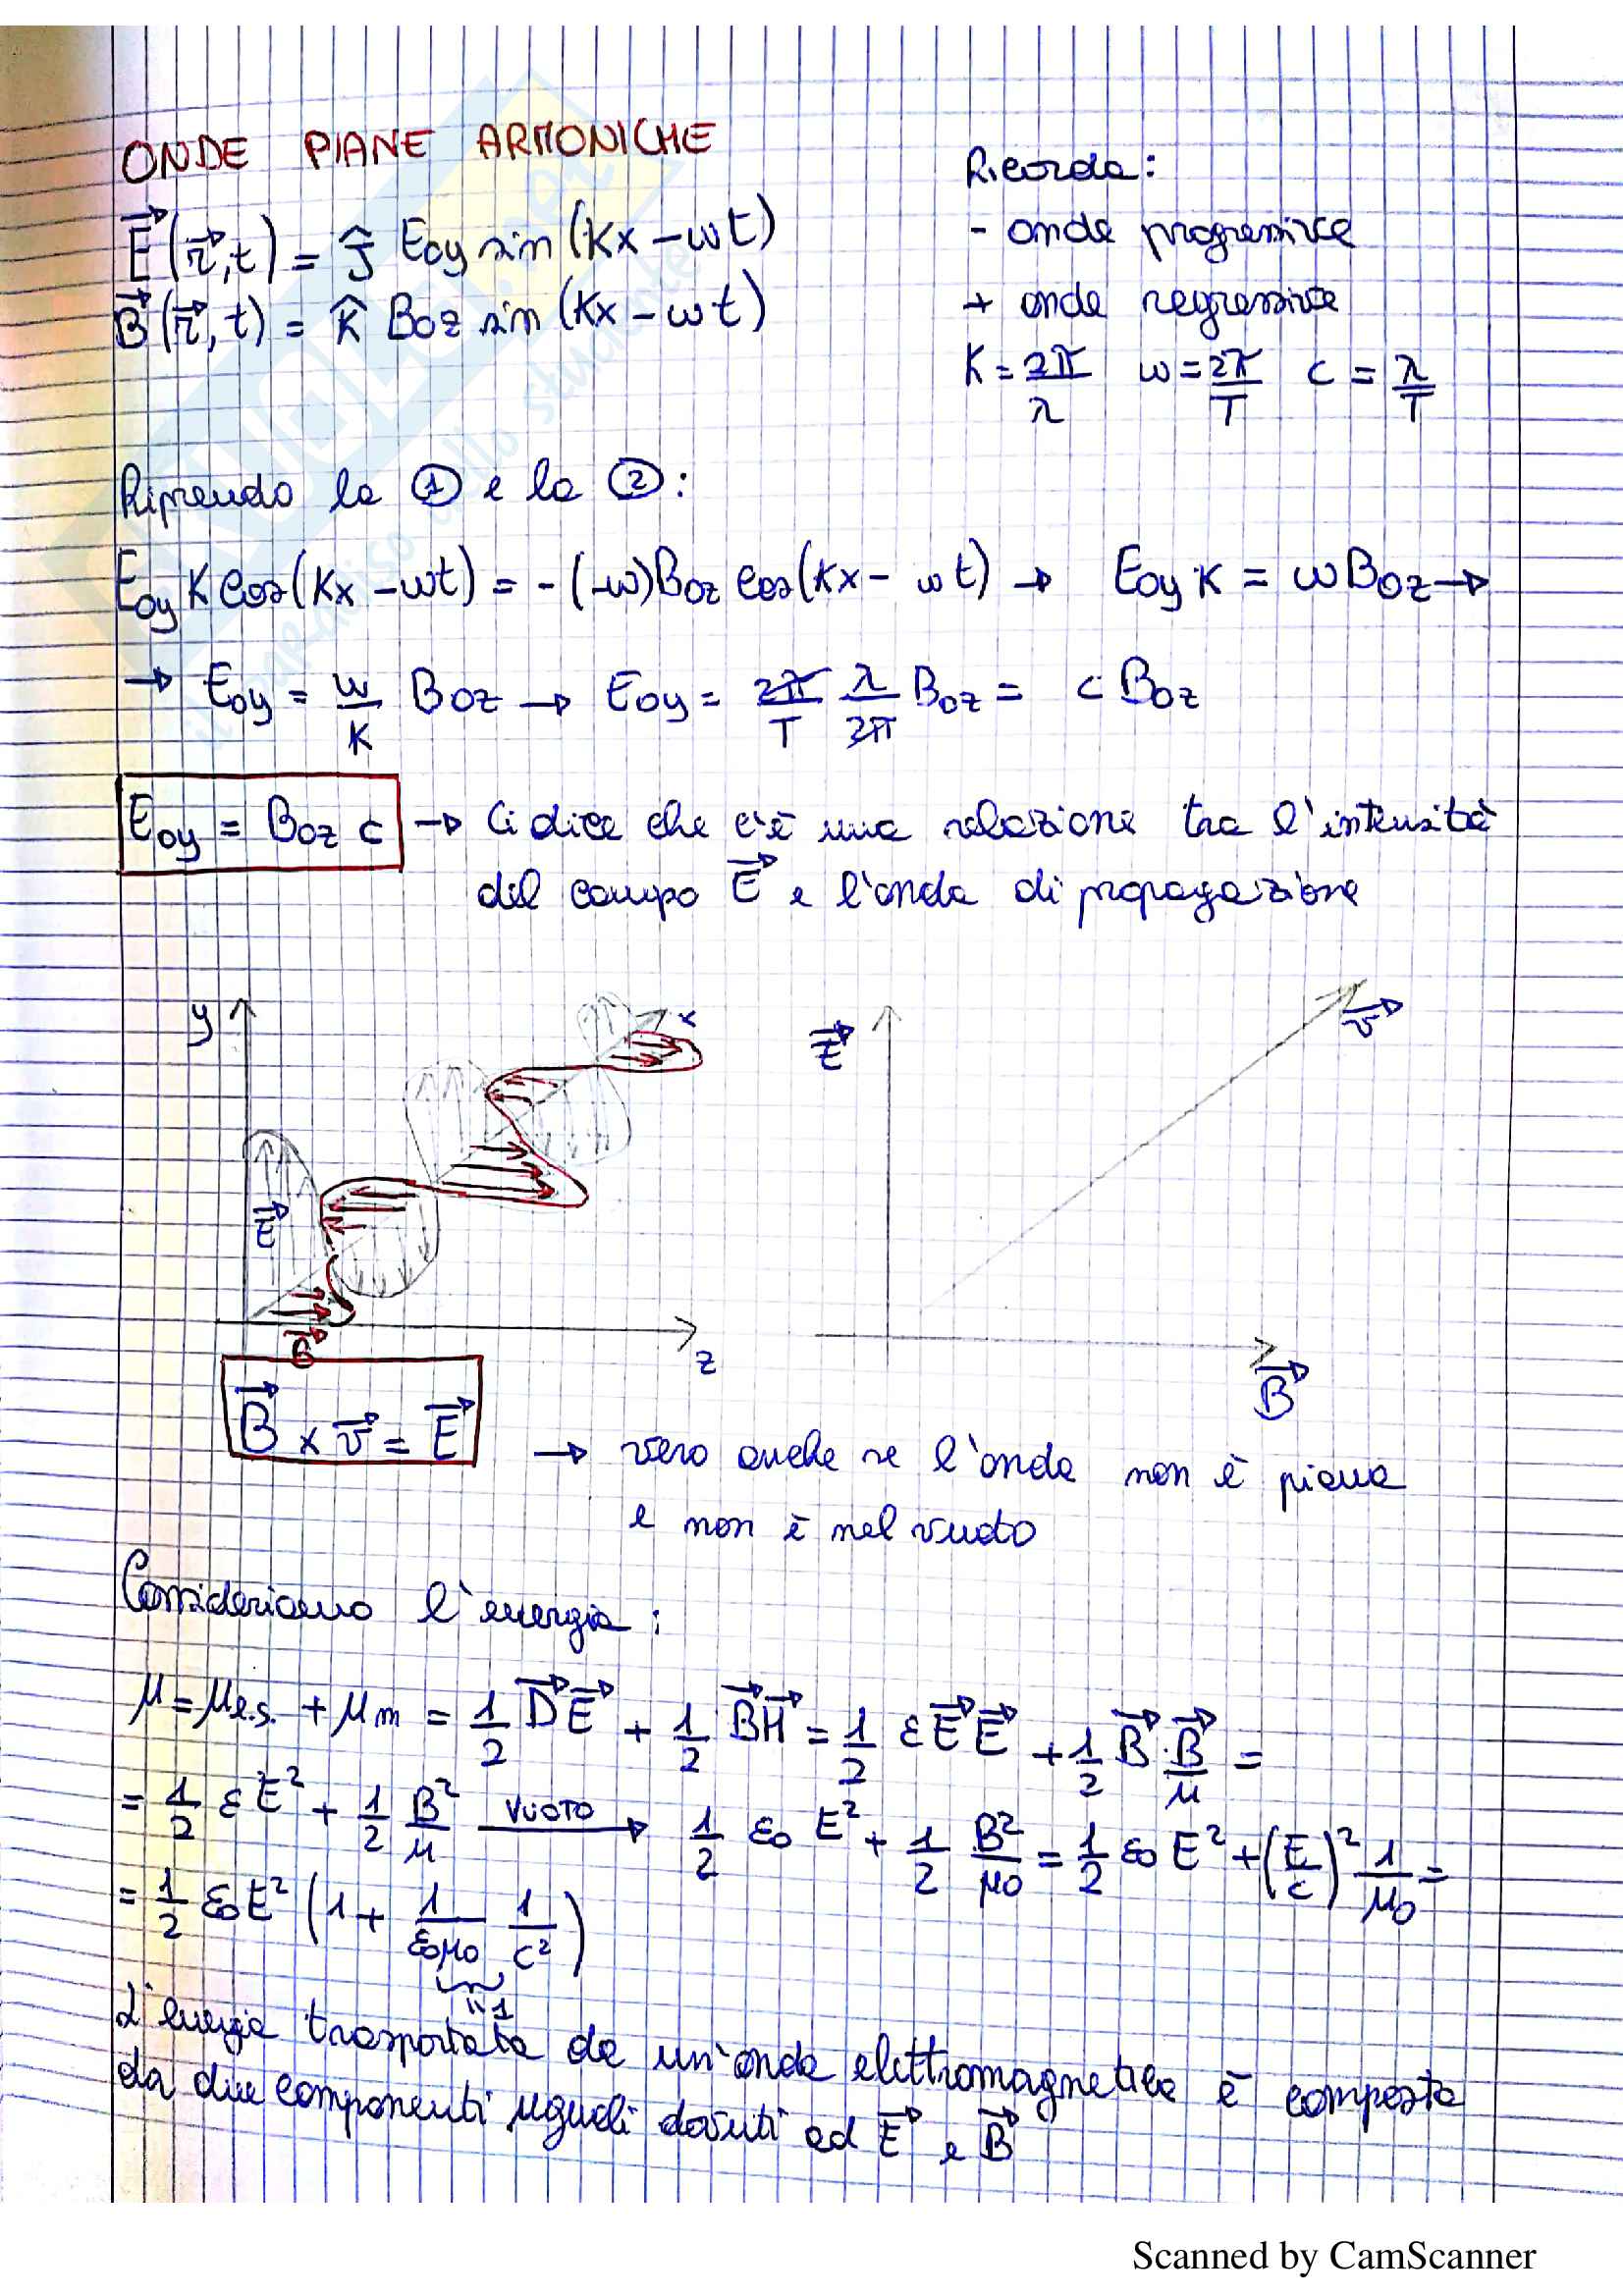 ONDE PIANE ARMONICHE
E⃗(r⃗,t) = ĵ E₀y sin(Kx − ωt)
B⃗(r⃗,t) = k̂ B₀z sin(Kx − ωt)
Ricorda:
- onde progressive
+ onde regressive
K = 2π/λ ω = 2π/T c = λ/T
Riprendo la ① e la ②:
E₀y K cos(Kx − ωt) = -(-ω)B₀z cos(Kx − ωt) → E₀y K = ωB₀z →
→ E₀y = ω/K B₀z → E₀y = 2π/T λ/2π B₀z = c B₀z
E₀y = B₀z c → Ci dice che c'è una relazione tra l'intensità
del campo E⃗ e l'onda di propagazione
y
x
E⃗
v⃗
E⃗
B⃗
z
B⃗
B⃗ × v⃗ = E⃗ → vero anche se l'onda non è piana
e non è nel vuoto
Consideriamo l'energia:
μ = μe.s. + μm = 1/2 D⃗E⃗ + 1/2 B⃗H⃗ = 1/2 εE⃗E⃗ + 1/2 B⃗·B⃗/μ =
= 1/2 εE² + 1/2 B²/μ VUOTO → 1/2 ε₀ E² + 1/2 B²/μ₀ = 1/2 ε₀ E² + (E/c)² 1/μ₀ =
= 1/2 ε₀E² (1 + 1/ε₀μ₀ 1/c²)
"1
L'energia trasportata da un'onda elettromagnetica è composta
da due componenti uguali dovuti ad E⃗ e B⃗
Scanned by CamScanner